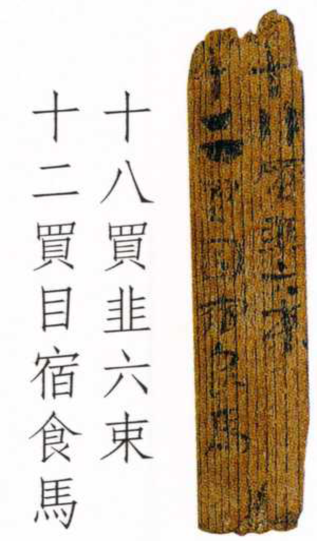 十八買韭六束
十二買目宿食馬